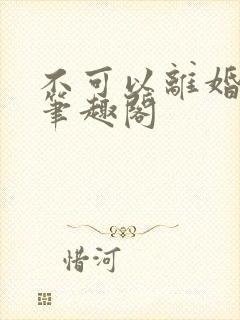 不可以離婚
筆趣閣
惜河